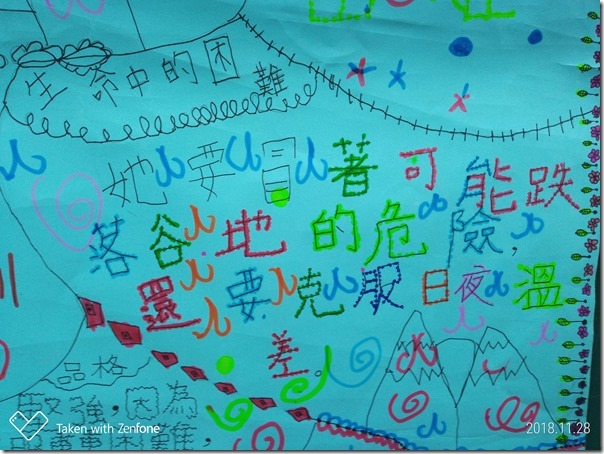 生命中的困難
她要冒著可能跌
落谷地的危險,
還要克服日夜溫
差。
品格
堅強,因為
困難,
Taken with Zenfone
2018.11.28